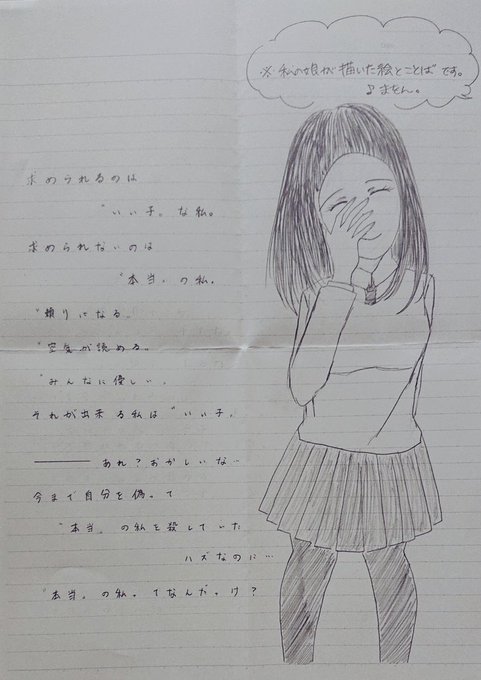 ※私の娘が描いた絵とことばです。
♪まみん。
求められるのは
"いい子"な私。
求められないのは
"本当"の私。
"頼りになる"
"空気が読める"
"みんなに優しい"
それが出来る私は"いい子"
――― あれ?おかしいな…
今まで自分を偽って
"本当"の私を殺していた
ハズなのに…
"本当"の私ってなんだっけ?